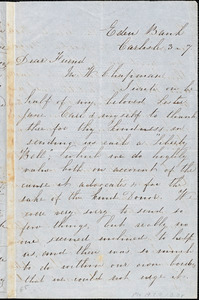 Eden Bank
Carlisle 3-7
Dear Friend
M. W. Chapman
I wish on be
half of my beloved Sister
Jane Carr & myself to thank
thee for thy kindness in
sending us each a "Liberty
Bell," which we do highly
value both on account of the
cause it advocates & for the
sake of the kind donor. We
were very sorry to send so
few things, but really no
one seemed inclined to help
us, and there was so much
to do without our own
that we could not urge it.